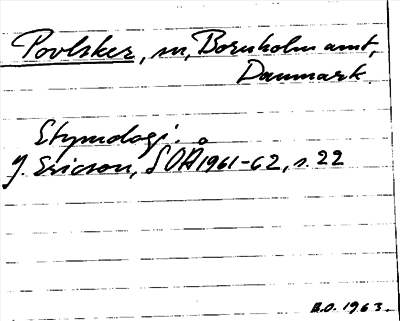 Povlsker, sn, Bornholm amt,
Danmark.
Etymologi.
J. Ericson, SOÅ 1961-62, s. 22
B.O. 1963.